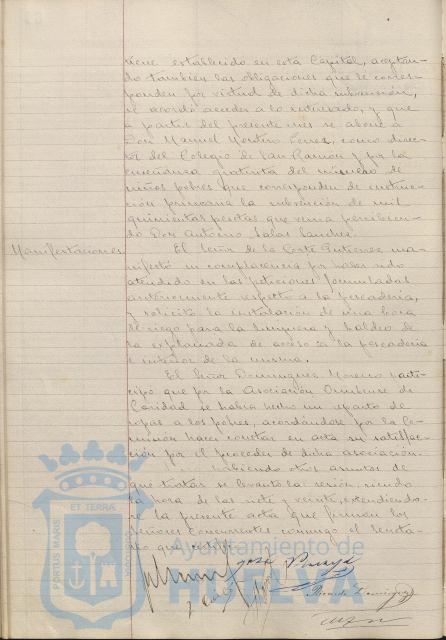 tiene establecido en esta Capital, aceptan-
do tambien las obligaciones que le corres-
ponden por virtud de dicha subvencion,
se acordó acceder a lo interesado, y que
a partir del presente mes se abone a
Don Manuel Montero Perez, como direc-
tor del Colegio de San Ramon y por la
enseñanza gratuita del número de
niños pobres que corresponden de instruc-
ción primaria la subvención de mil
quinientas pesetas que venia percibien-
do Don Antonio Salas Sanchez.
Manifestaciones
El Señor de la Corte Gutierrez ma-
nifestó su complacencia por haber sido
atendido en las peticiones formuladas
anteriormente respecto a la pescaderia,
y solicitó la instalación de una boca
de riego para la limpieza y baldeo de
la explanada de acceso a la pescaderia
e interior de la misma.
El Señor Dominguez Moreno parti-
cipó que por la Asociación Onubense de
Caridad se habia hecho un reparto de
ropas a los pobres, acordándose por la Co-
misión hacer constar en acta su satisfac-
ción por el proceder de dicha asociación.
habiendo otros asuntos de
que tratar se levantó la sesión, siendo
la hora de las siete y veinte, extendiendo-
se la presente acta que firman los
señores concurrentes conmigo el Secreta-
rio que certifico.
PORTUS MARIS ET TERRAE CUSTODIA
Ayuntamiento de
HUELVA